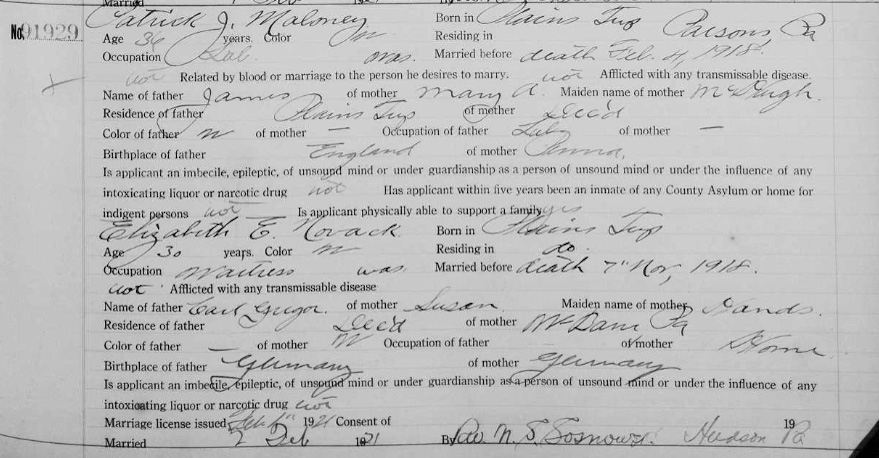 Married
Patrick J. Maloney Born in Plains Twp
No. 91929 Age 36 years. Color W Residing in Parsons, Pa
Occupation Lab. was. Married before death Feb. 4, 1918.
not Related by blood or marriage to the person he desires to marry. not Afflicted with any transmissable disease.
Name of father James of mother Mary A. Maiden name of mother McHugh.
Residence of father Plains Twp of mother Dec'd
Color of father W of mother — Occupation of father Lab of mother —
Birthplace of father England of mother Penna,
Is applicant an imbecile, epileptic, of unsound mind or under guardianship as a person of unsound mind or under the influence of any
intoxicating liquor or narcotic drug not Has applicant within five years been an inmate of any County Asylum or home for
indigent persons not Is applicant physically able to support a family yes
Elizabeth E. Novack Born in Plains Twp
Age 30 years. Color W Residing in do.
Occupation Waitress was. Married before death 7" Nov, 1918.
not Afflicted with any transmissable disease
Name of father Carl of mother Susan Maiden name of mother Hands.
Residence of father Dec'd of mother Pa
Color of father — of mother W Occupation of father of mother Home
Birthplace of father Germany of mother Germany
Is applicant an imbecile, epileptic, of unsound mind or under guardianship as a person of unsound mind or under the influence of any
intoxicating liquor or narcotic drug not
Marriage license issued 1921 Consent of 19
Married 7 Feb 1921 By Rev N. S. Hudson Pa